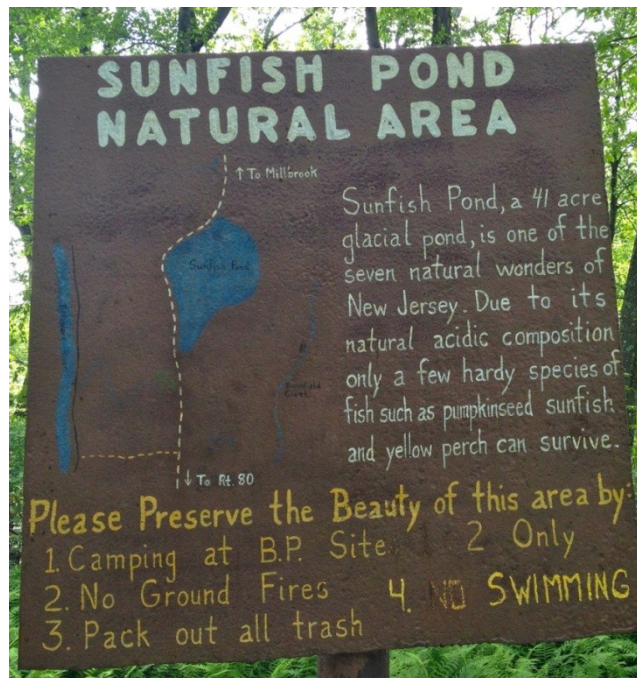 SUNFISH POND
NATURAL AREA
↑ To Millbrook
Sunfish Pond
Sunfish Pond, a 41 acre
glacial pond, is one of the
seven natural wonders of
New Jersey. Due to its
natural acidic composition
only a few hardy species of
fish such as pumpkinseed sunfish
and yellow perch can survive.
Creek
↓ To Rt. 80
Please Preserve the Beauty of this area by:
1. Camping at B.P. Site 2 Only
2. No Ground Fires
3. Pack out all trash
4. NO SWIMMING